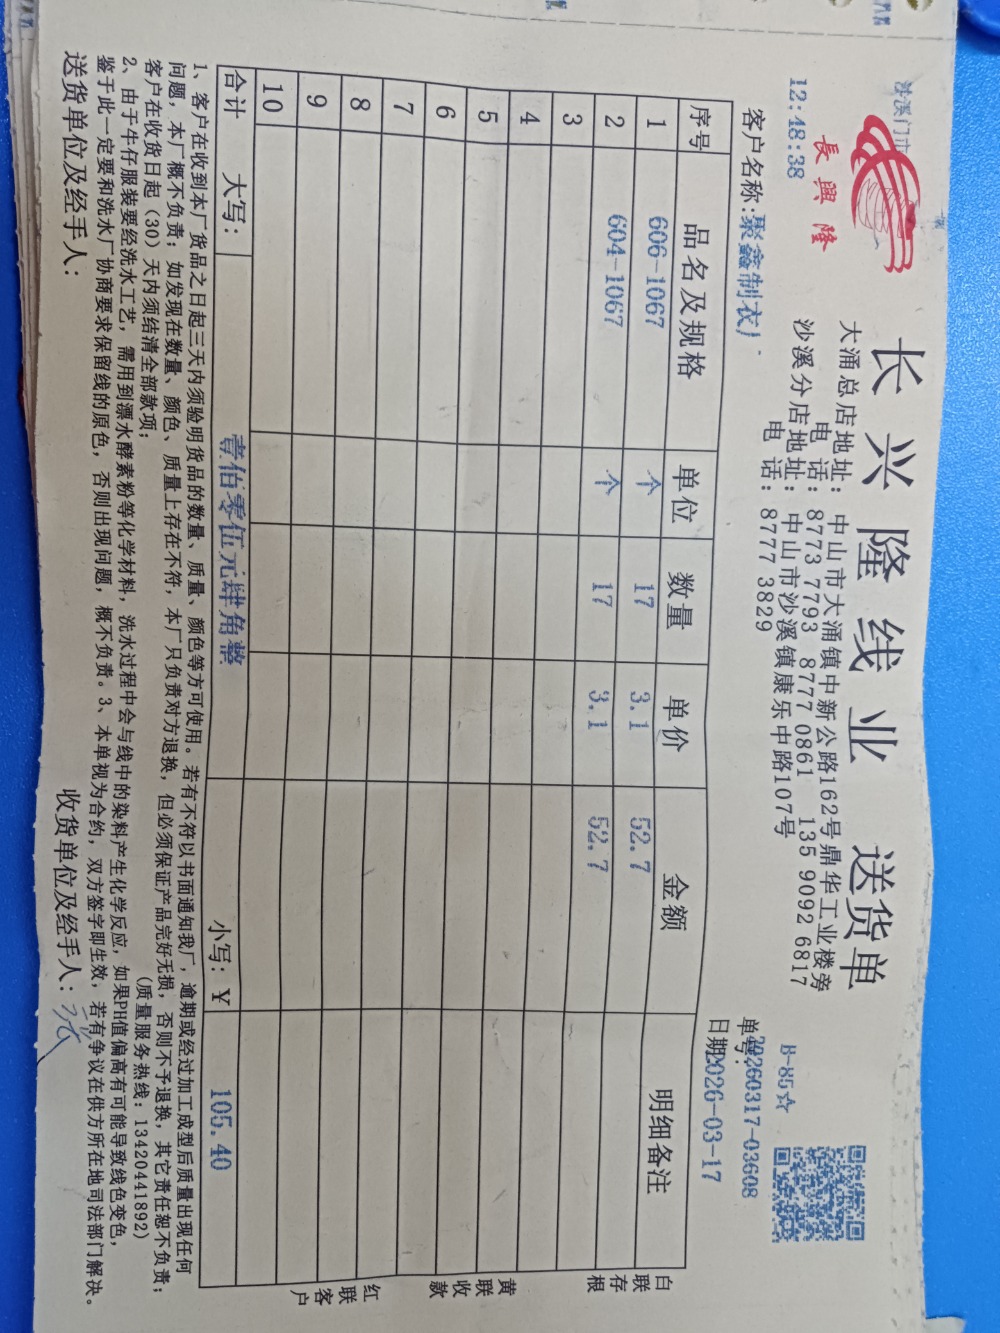 沙溪门市
12:48:38
長興隆
长兴隆线业 送货单
大涌总店地址: 中山市大涌镇中新公路162号鼎华工业楼旁
电 话: 8773 7793 8777 0861 135 9092 6817
沙溪分店地址: 中山市沙溪镇康乐中路107号
电 话: 8777 3829
B-85☆
单号: 20260317-03608
客户名称:聚鑫制衣)
日期2026-03-17
序号 品名及规格 单位 数量 单价 金额 明细备注
1 606-1067 个 17 3.1 52.7
2 604-1067 个 17 3.1 52.7
3
4
5
6
7
8
9
10
合计 大写: 壹佰零伍元肆角整 小写: ¥ 105.40
白联存根
黄联收款
红联客户
1、客户在收到本厂货品之日起三天内须验明货品的数量、质量、颜色等方可使用。若有不符以书面通知我厂，逾期或经过加工成型后质量出现任何
问题，本厂概不负责；如发现在数量、颜色、质量上存在不符，本厂只负责对方退换，但必须保证产品完好无损，否则不予退换，其它责任恕不负责；
客户在收货日起（30）天内须结清全部款项； (质量服务热线: 13420441892)
2、由于牛仔服装要经洗水工艺，需用到漂水酵素粉等化学材料，洗水过程中会与线中的染料产生化学反应，如果PH值偏高有可能导致线色变色，
鉴于此一定要和洗水厂协商要求保留线的原色，否则出现问题，概不负责。3、本单视为合约，双方签字即生效，若有争议在供方所在地司法部门解决。
送货单位及经手人: 收货单位及经手人: